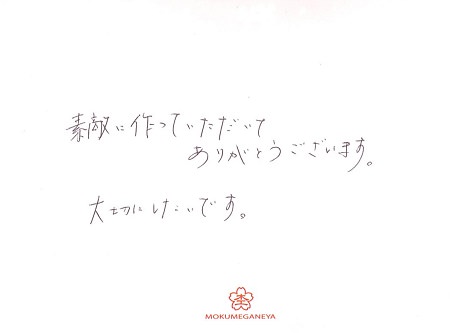 素敵に作っていただいて
ありがとうございます。
大切にしたいです。
杢
MOKUMEGANEYA